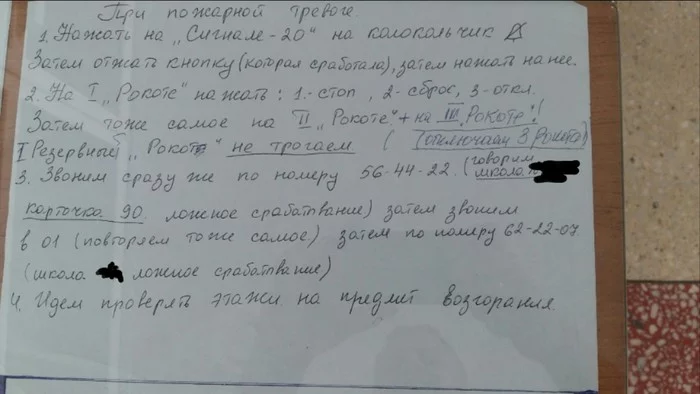 При пожарной тревоге.
1. Нажать на „Сигнале-20" на колокольчик
Затем отжать кнопку (которая сработала), затем нажать на нее.
2. На I „Рокоте" нажать: 1.- стоп, 2- сброс, 3- откл.
Затем тоже самое на II „Рокоте" + на III Рокоте!
I Резервный „Рокот" не трогаем. (отключаем 3 Рокота)
3. Звоним сразу же по номеру 56-44-22. (говорим школа
карточка 90. ложное срабатвание) затем звоним
в 01 (повторяем тоже самое) затем по номеру 62-22-07
(школа ложное срабатвание)
4. Идем проверять этажи на предмет возгорания.